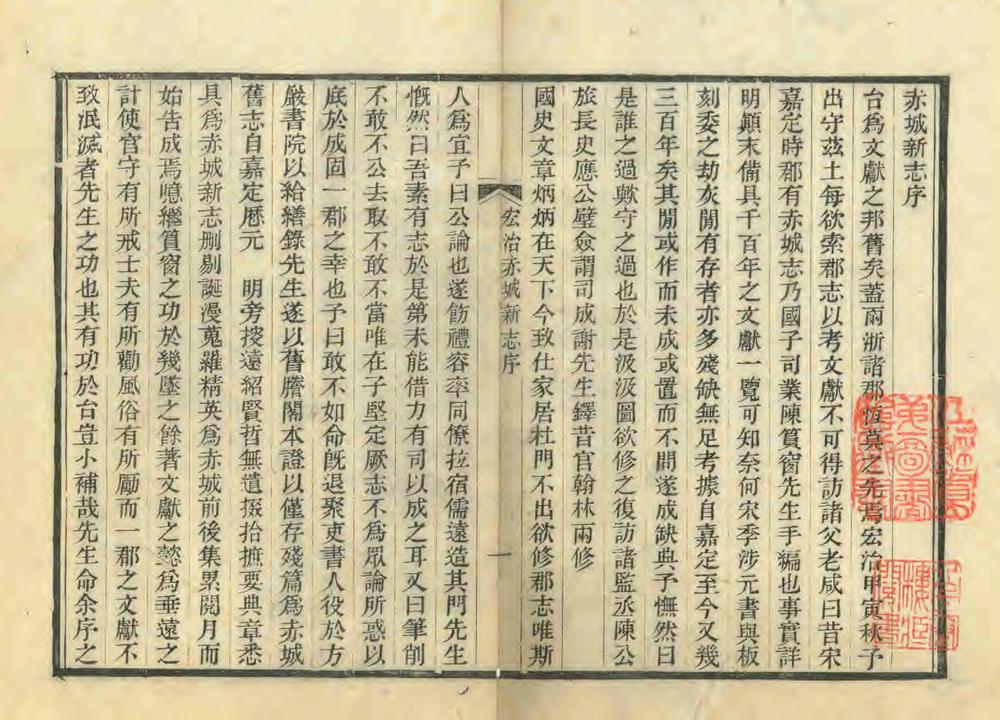 赤城新志序
台爲文獻之邦舊矣蓋兩浙諸郡恆莫之先焉宏治甲寅秋予
出守茲土每欲索郡志以考文獻不可得訪諸父老咸曰昔宋
嘉定時郡有赤城志乃國子司業陳篔窗先生手編也事實詳
明顛末備具千百年之文獻一覽可知奈何宋季涉元書與板
刻委之劫灰閒有存者亦多殘缺無足考據自嘉定至今又幾
三百年矣其閒或作而未成或置而不問遂成缺典予憮然曰
是誰之過歟守之過也於是汲汲圖欲修之復訪諸監丞陳公
旅長史應公璧僉謂司成謝先生鐸昔官翰林兩修
國史文章炳炳在天下今致仕家居杜門不出欲修郡志唯斯
宏治赤城新志序
一
人爲宜予曰公論也遂飭禮容率同僚拉宿儒遠造其門先生
慨然曰吾素有志於是第未能借力有司以成之耳又曰筆削
不敢不公去取不敢不當唯在子堅定厥志不爲眾論所惑以
底於成固一郡之幸也予曰敢不如命旣退聚吏書人役於方
嚴書院以給繕錄先生遂以舊謄閣本證以僅存殘篇爲赤城
舊志自嘉定歷元　明旁搜遠紹賢哲無遺掇拾摭要典章悉
具爲赤城新志刪剔誕漫蒐羅精英爲赤城前後集累閱月而
始告成焉噫繼篔窗之功於幾墜之餘著文獻之懿爲垂遠之
計使官守有所戒士夫有所勸風俗有所勵而一郡之文獻不
致泯滅者先生之功也其有功於台豈小補哉先生命余序之